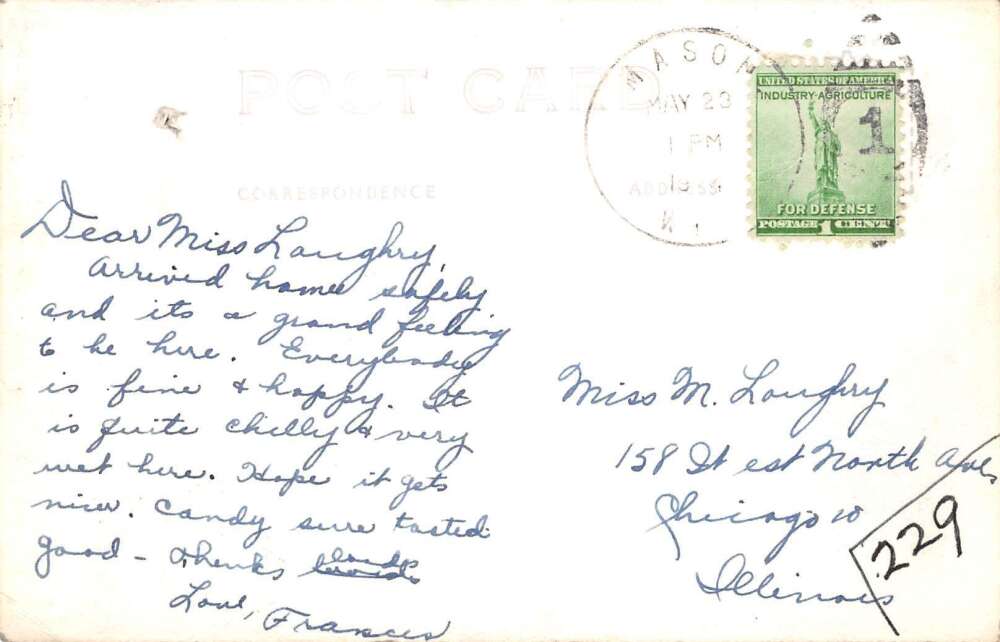 POST CARD
MASON
MAY 23
1 PM
UNITED STATES OF AMERICA
INDUSTRY-AGRICULTURE
1
FOR DEFENSE
POSTAGE 1 CENT
CORRESPONDENCE
ADDRESS
Dear Miss Loughry,
Arrived home safely
and its a grand feeling
to be here. Everybody
is fine & happy. It
is quite chilly & very
wet here. Hope it gets
nicer. Candy sure tasted
good - thanks loads
Love,
Frances
Miss M. Loughry
158 West North Ave
Chicago 10
Illinois
229